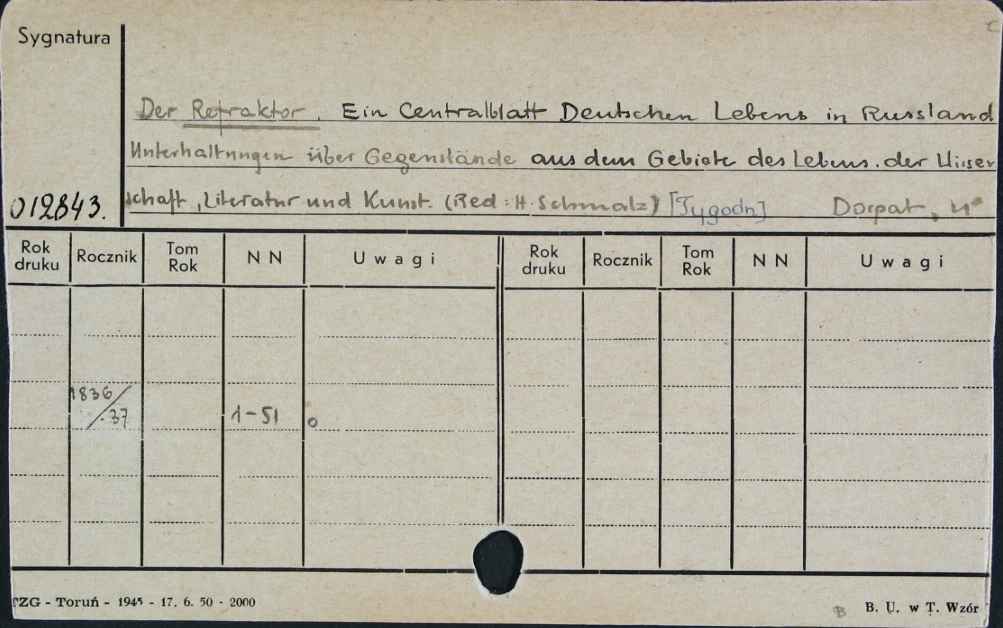 Sygnatura
Der Refraktor. Ein Centralblatt Deutschen Lebens in Russland
Unterhaltungen über Gegenstände aus dem Gebiete des Lebens. der Wissen
schaft, Literatur und Kunst. (Red: H. Schmalz) [Tygodn] Dorpat, 4°
012843.
Rok druku Rocznik Tom Rok N N Uwagi Rok druku Rocznik Tom Rok N N Uwagi
1836/.37 1-51 o
TZG - Toruń - 1945 - 17. 6. 50 - 2000
B B. U. w T. Wzór